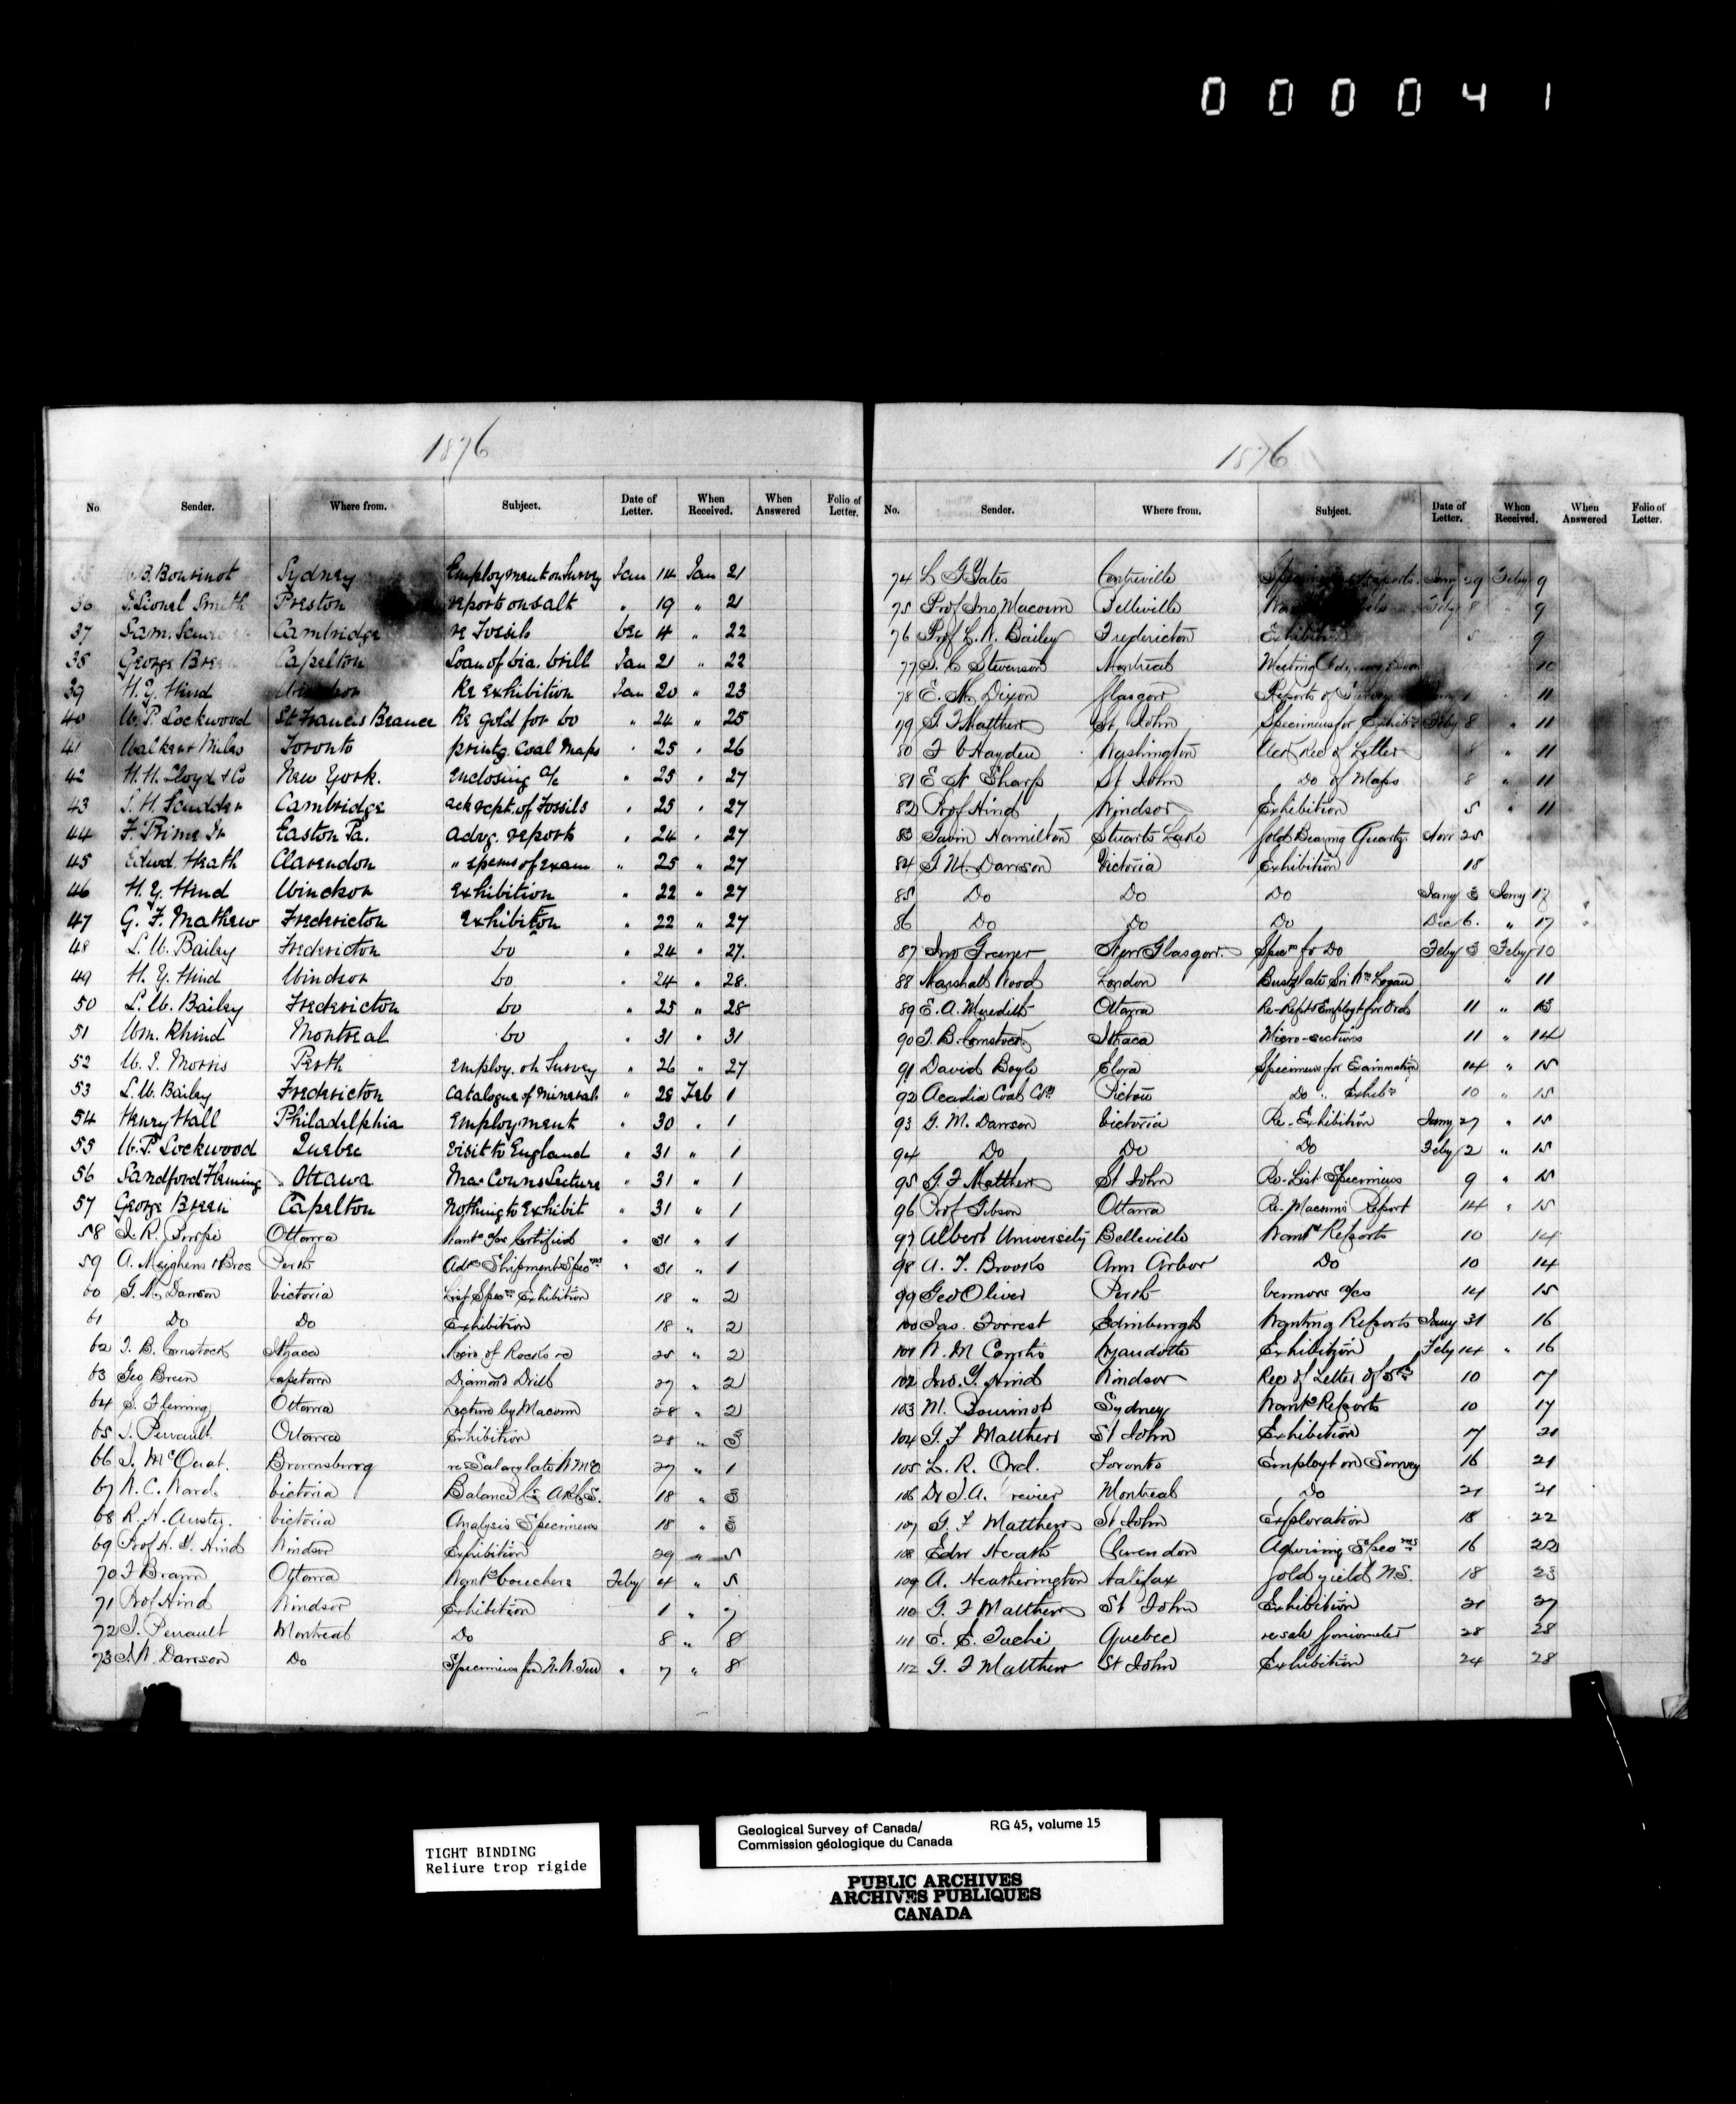 000041
1876
No. Sender. Where from. Subject. Date of Letter. When Received. When Answered Folio of Letter.
B. Bourinot Sydney Employment on Survey Jan 14 Jan 21
36 J. Lionel Smith Preston report on salt " 19 " 21
37 Sam. Cambridge re Fossils Dec 4 " 22
38 George Capelton Loan of dia. drill Jan 21 " 22
39 H. Y. Hind Windsor Re exhibition Jan 20 " 23
40 W. P. Lockwood St Francis Beauce Re gold for do " 24 " 25
41 Walker & Miles Toronto printg. Coal Maps " 25 " 26
42 H. H. Lloyd & Co New York. Enclosing a/c " 25 " 27
43 S. H. Scudder Cambridge ack rept. of Fossils " 25 " 27
44 F. Prime Jr Easton Pa. advg. report " 24 " 27
45 Edwd. Heath Clarendon " specms of exam " 25 " 27
46 H. Y. Hind Windsor Exhibition " 22 " 27
47 G. F. Mathew Fredericton Exhibiton " 22 " 27
48 L. W. Bailey Fredericton do " 24 " 27.
49 H. Y. Hind Windsor do " 24 " 28.
50 L. W. Bailey Fredericton do " 25 " 28
51 Wm. Rhind Montreal do " 31 " 31
52 W. J. Morris Perth Employ. on Survey " 26 " 27
53 L. W. Bailey Fredericton Catalogue of Minerals " 28 Feb 1
54 Henry Hall Philadelphia Employment " 30 " 1
55 W. P. Lockwood Quebec Visit to England " 31 " 1
56 Sandford Fleming Ottawa MacCouns Lecture " 31 " 1
57 George Breen Capelton Nothing to Exhibit " 31 " 1
58 I. R. Burpé Ottawa Wantg a/cs Certified " 31 " 1
59 A. Meighens & Bros Perth Advg Shipment Specns " 31 " 1
60 G. M. Dawson Victoria List Specns Exhibition 18 " 2
61 Do Do Exhibition 18 " 2
62 T. B. Comstock Ithaca Micro of Rocks &c 25 " 2
63 Geo Breen Capetown Diamond Drill 27 " 2
64 S. Fleming Ottawa Lecture by Macoun 28 " 2
65 J. Perrault Ottawa Exhibition 28 " 3
66 J. McOuat. Brownsburg re Salary late W McO. 27 " 1
67 W. C. Ward. Victoria Balance 18 " 3
68 R. H. Austin. Victoria Analysis Specimens 18 " 3
69 Prof H. Y. Hind Windsor Exhibition 29 " 5
70 F Braun Ottawa Wantg Vouchers Feby 4 " 5
71 Prof Hind Windsor Exhibition 1 " 7
72 J. Perrault Montreal Do 8 " 8
73 J. W. Dawson Do Specimens for N. W. Terr " 7 " 8
1876
No. Sender. Where from. Subject. Date of Letter. When Received. When Answered Folio of Letter.
74 L G Yates Centreville Reports. Jany 29 Feby 9
75 Prof Jno. Macoun Belleville Feby 8 " 9
76 Prof L. W. Bailey Fredericton Exhibition 5 9
77 S. C Stevenson Montreal Meeting 10
78 E. M. Dixon Glasgow Reports of Survey 1 11
79 G F Matthew St. John Specimens for Exhibn Feby 8 " 11
80 F V Hayden Washington Ack Rec of Letter 8 " 11
81 E N Sharp St John Do of Maps 8 " 11
82 Prof Hind Windsor Exhibition 5 " 11
83 Gavin Hamilton Stuarts Lake Gold Bearing Quartz. Novr 25
84 G M. Dawson Victoria Exhibition 18
85 Do Do Do Jany 3 Jany 17
86 Do Do Do Dec 6. " 17
87 Jno Greener New Glasgow. Specns for Do Feby 3 Feby 10
88 Marshall Wood London Bust late Sir Wm Logan " 11
89 E. A. Meredith Ottawa Re-Rept & Employt for Ord 11 " 13
90 T. B. Comstock Ithaca Micro-sections 11 " 14
91 David Boyle Elora Specimens for Examination 14 " 15
92 Acadia Coal Coy Pictou Do " Exhibn 10 " 15
93 G. M. Dawson Victoria Re-Exhibition Jany 27 " 15
94 Do Do Do Feby 2 " 15
95 G. F Matthew St John Re-List Specimens 9 " 15
96 Prof Gibson Ottawa Re-Macouns Report 14 " 15
97 Albert University Belleville Wantg Reports 10 14
98 A. T. Brooks Ann Arbor Do 10 14
99 Geo Oliver Perth Vennors a/cs 14 15
100 Jas. Forrest Edinburgh Wanting Reports Jany 31 16
101 W. M Wyandotte Exhibition Feby 14 " 16
102 Jno. Y. Hind Windsor Rec of Letter of 5th 10 17
103 M. Bourinot Sydney Wantg Reports 10 17
104 G. F Matthew St John Exhibition 17 21
105 L. R. Ord. Toronto Employt on Survey 16 21
106 Dr J. A. Montreal Do 21 21
107 G. F Matthew St John Exploration 18 22
108 Edw Heath Clarendon Advising Specns 16 22
109 A. Heatherington Halifax Gold yield N.S. 18 23
110 G. F Matthew St John Exhibition 21 27
111 E. E. Taché Quebec re sale Goniometer 28 28
112 G. F Matthew St John Exhibition 24 28
TIGHT BINDING
Reliure trop rigide
Geological Survey of Canada/ RG 45, volume 15
Commission géologique du Canada
PUBLIC ARCHIVES
ARCHIVES PUBLIQUES
CANADA